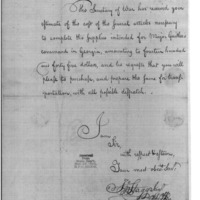 The Secretary of War has received your
estimate of the cost of the several articles necessary
to complete the supplies intended for Major Gaither's
command in Georgia, amounting to fourteen hundred
and forty five dollars, and he requests that you will
please to purchase, and prepare the same for transportation
portation, with all possible dispatch.
I am
Sir,
with respect & esteem
Your most obedt. Servt.